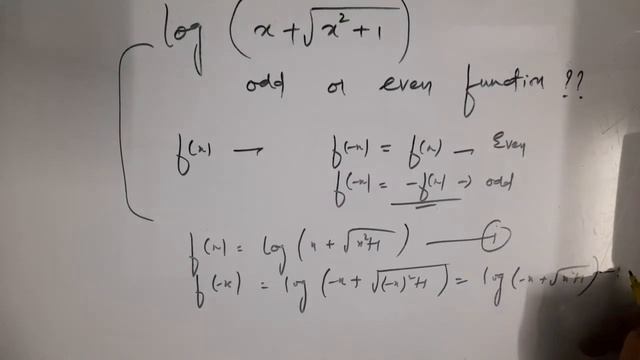 log (x + √x² + 1)
odd or even function ??
f(x) → f(-x) = f(x) → Even
f(-x) = -f(x) → odd
f(x) = log (x + √x²+1) — ①
f(-x) = log (-x + √(-x)²+1) = log (-x + √x²+1) –